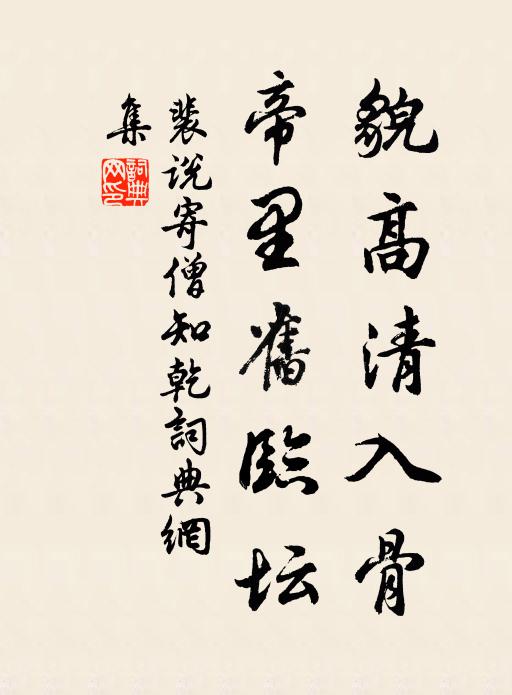 貌高清入骨
帝里舊臨坛
裴说寄僧知乾詞典網
集
詞典網印